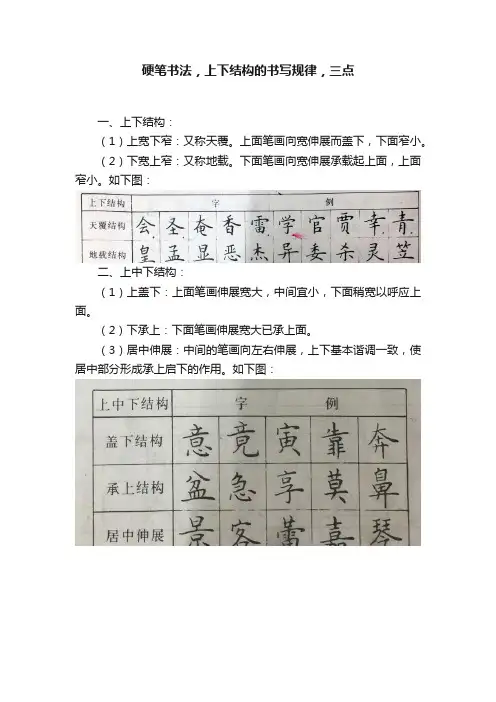 硬笔书法，上下结构的书写规律，三点
一、上下结构：
（1）上宽下窄：又称天覆。上面笔画向宽伸展而盖下，下面窄小。
（2）下宽上窄：又称地载。下面笔画向宽伸展承载起上面，上面
窄小。如下图：
上下结构 字 例
天覆结构 会 圣 奄 香 雷 学 官 贾 幸 青
地载结构 皇 孟 显 恶 杰 异 委 杀 灵 笠
二、上中下结构：
（1）上盖下：上面笔画伸展宽大，中间宜小，下面稍宽以呼应上
面。
（2）下承上：下面笔画伸展宽大已承上面。
（3）居中伸展：中间的笔画向左右伸展，上下基本谐调一致，使
居中部分形成承上启下的作用。如下图：
上中下结构 字 例
盖下结构 意 竟 寅 靠 奔
承上结构 盆 急 享 莫 鼻
居中伸展 景 客 蕾 嘉 琴